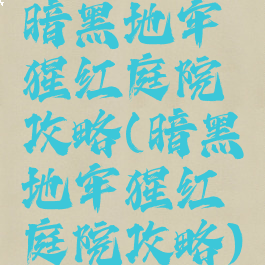 暗黑地牢
猩红庭院
攻略(暗黑
地牢猩红
庭院攻略)